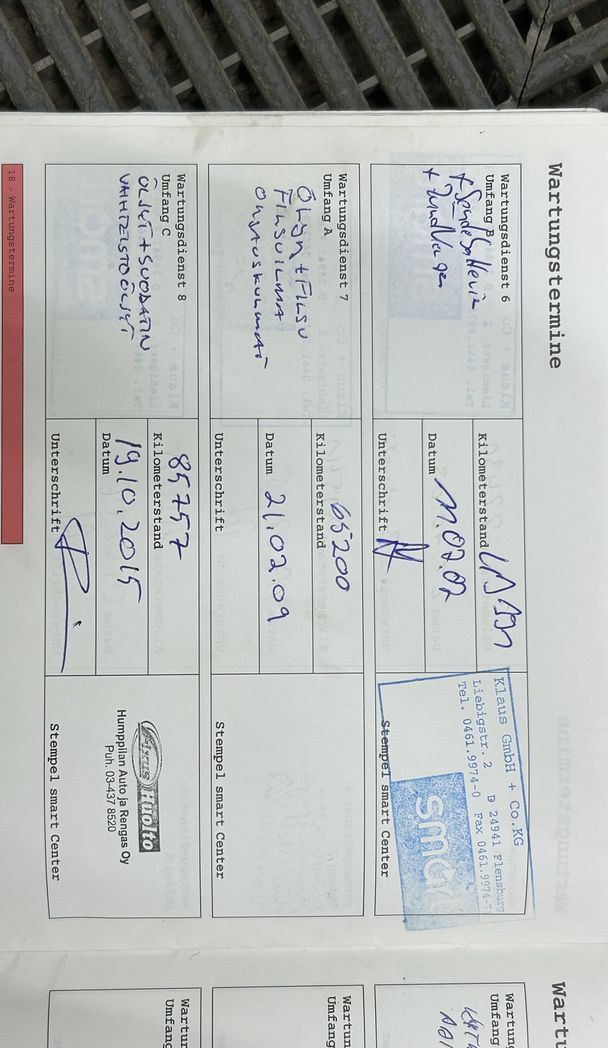 Wartungstermine
Wartungsdienst 6
Umfang B
Kilometerstand
Datum 11.07.07
Unterschrift
Klaus GmbH + Co.KG
Liebigstr. 2 D 24941 Flensburg
Tel. 0461.9974-0 Fax 0461.9974-7
smart
Stempel smart Center
Wartungsdienst 7
Umfang A
ÖLJYN + FILSU
FILSUILMA
OHJAUSKULMAT
Kilometerstand
65200
Datum 21.02.09
Unterschrift
Stempel smart Center
Wartungsdienst 8
Umfang C
ÖLJYT + SUODATIN
VAIHTEISTOÖLJYT
85757
Kilometerstand
19.10.2015
Datum
Unterschrift
Fixus Huolto
Humppilan Auto ja Rengas Oy
Puh. 03-437 8520
Stempel smart Center
18 - Wartungstermine
Wartu
Wartung
Umfang
Wartun
Umfang
Wartun
Umfang